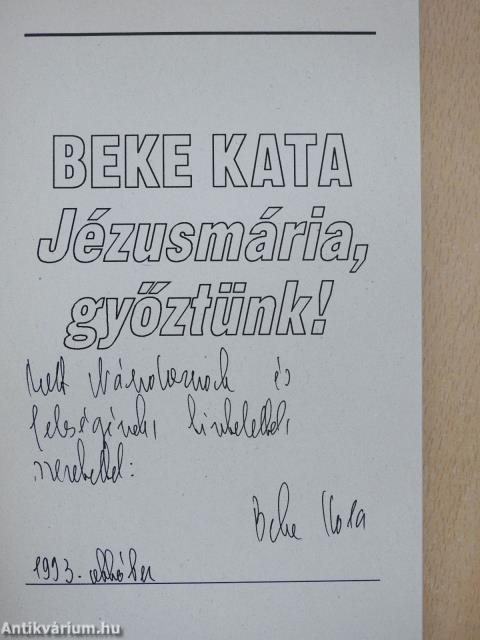 BEKE KATA
Jézusmária,
győztünk!
Nándornak és
feleségének, tisztelettel,
szeretettel:
Beke Kata
1993. október
Antikvárium.hu